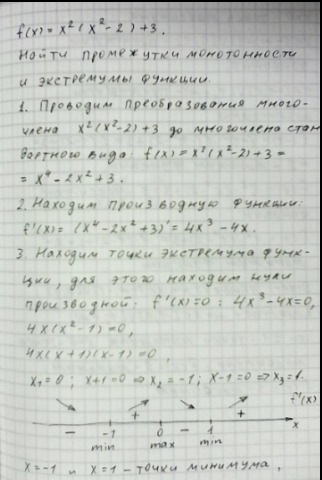 f(x) = x²(x²-2)+3.
Найти промежутки монотонности
и экстремумы функции.
1. Проводим преобразования много-
члена x²(x²-2)+3 до многочлена стан
дартного вида: f(x) = x²(x²-2)+3 =
= x⁴ - 2x² + 3.
2. Находим производную функции:
f'(x) = (x⁴ - 2x² + 3)' = 4x³ - 4x.
3. Находим точки экстремума функ-
ции, для этого находим нули
производной: f'(x) = 0 : 4x³ - 4x = 0,
4x(x² - 1) = 0,
4x(x+1)(x-1) = 0,
x₁ = 0 ; x+1 = 0 ⇒ x₂ = -1 ; x-1 = 0 ⇒ x₃ = 1.
f'(x)
− + − +
-1 0 1 x
min max min
x = -1 и x = 1 - точки минимума,